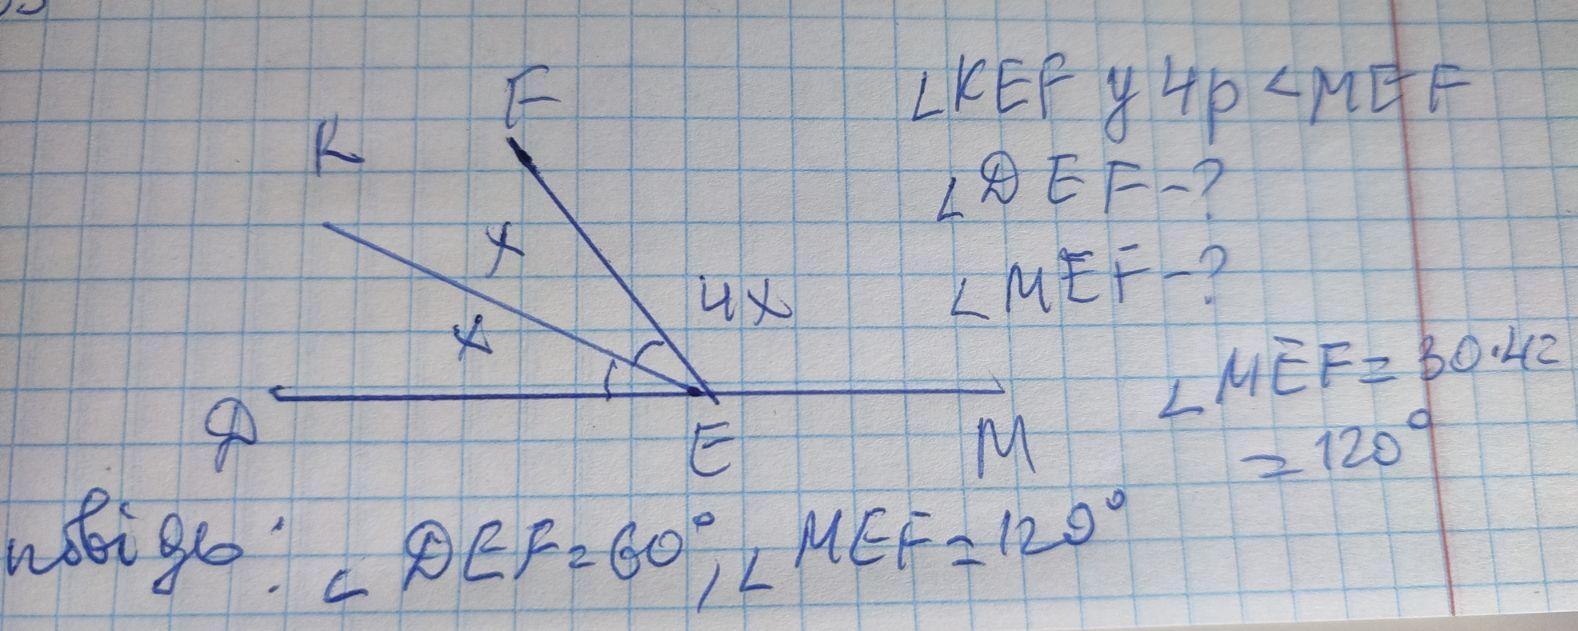 ∠KEF у 4р <MEF
F
K
∠DEF-?
x
∠MEF-?
4x
x
∠MEF = 30·4=
= 120°
D
E
M
∠DEF=60°, ∠MEF=120°